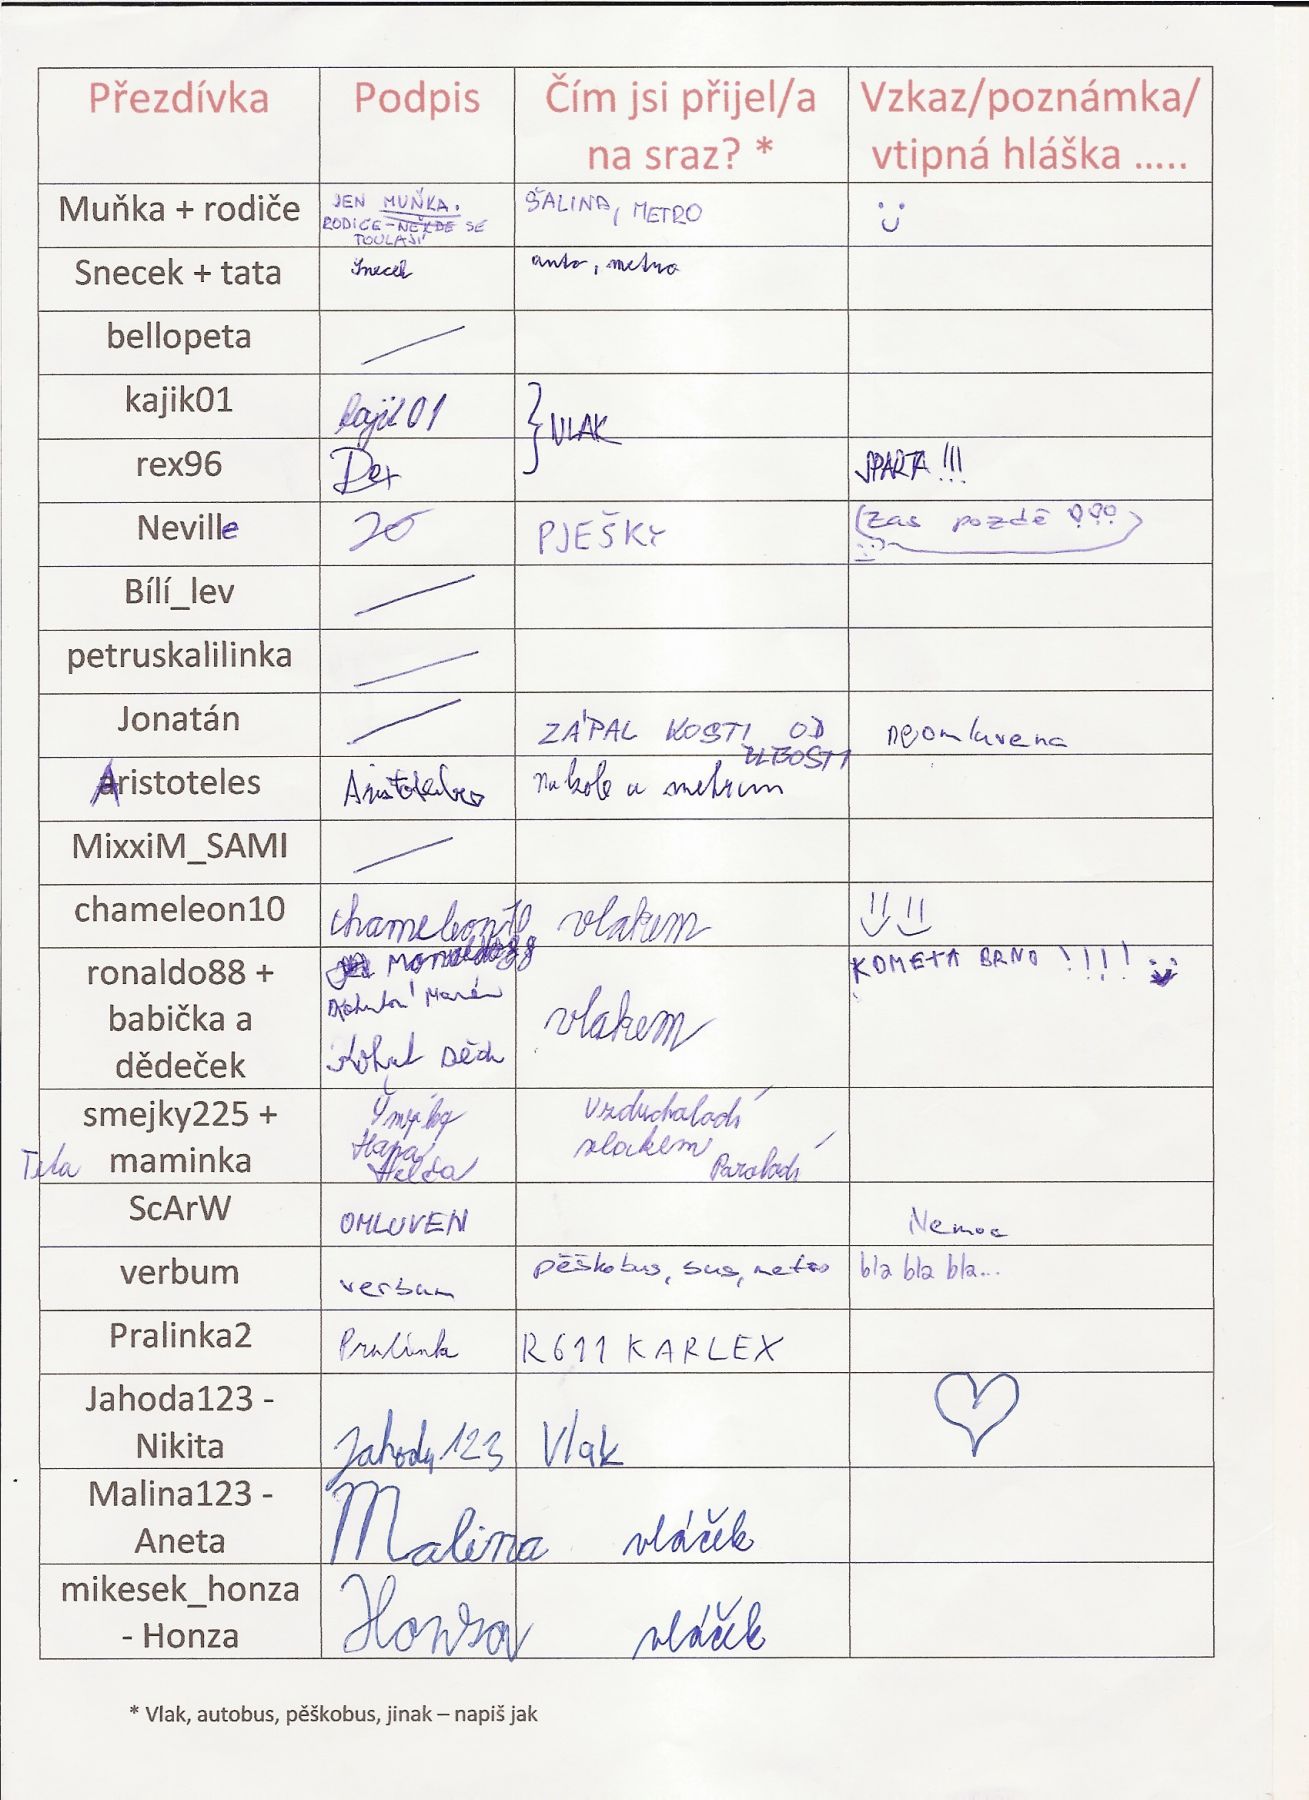 Přezdívka Podpis Čím jsi přijel/a Vzkaz/poznámka/
na sraz? * vtipná hláška .....
Muňka + rodiče JEN MUŇKA. ŠALINA, METRO
RODIČE - NĚKDE SE
TOULAJÍ
Snecek + tata Snecek auto, metro
bellopeta
kajik01 kajik01
VLAK
rex96 SPARTA !!!
Neville PJEŠKY (zas pozdě !!!)
Bílí_lev
petruskalilinka
Jonatán ZÁPAL KOSTI OD neomluvena
BLBOSTI
Aristoteles Aristoteles na kole a metrem
MixxiM_SAMI
chameleon10 chameleon10 vlakem
ronaldo88 + ronaldo88 KOMETA BRNO !!!!
babička a vlakem
dědeček Kohut Děda
smejky225 + Vzducholodí
Teta maminka Hana vlakem
Parolodí
ScArW OMLUVEN Nemoc
verbum verbum pěškobus, bus, metro bla bla bla...
Pralinka2 Pralinka R611 KARLEX
Jahoda123 -
Nikita Jahoda123 Vlak
Malina123 -
Aneta Malina vláček
mikesek_honza
- Honza Honza vláček
* Vlak, autobus, pěškobus, jinak – napiš jak